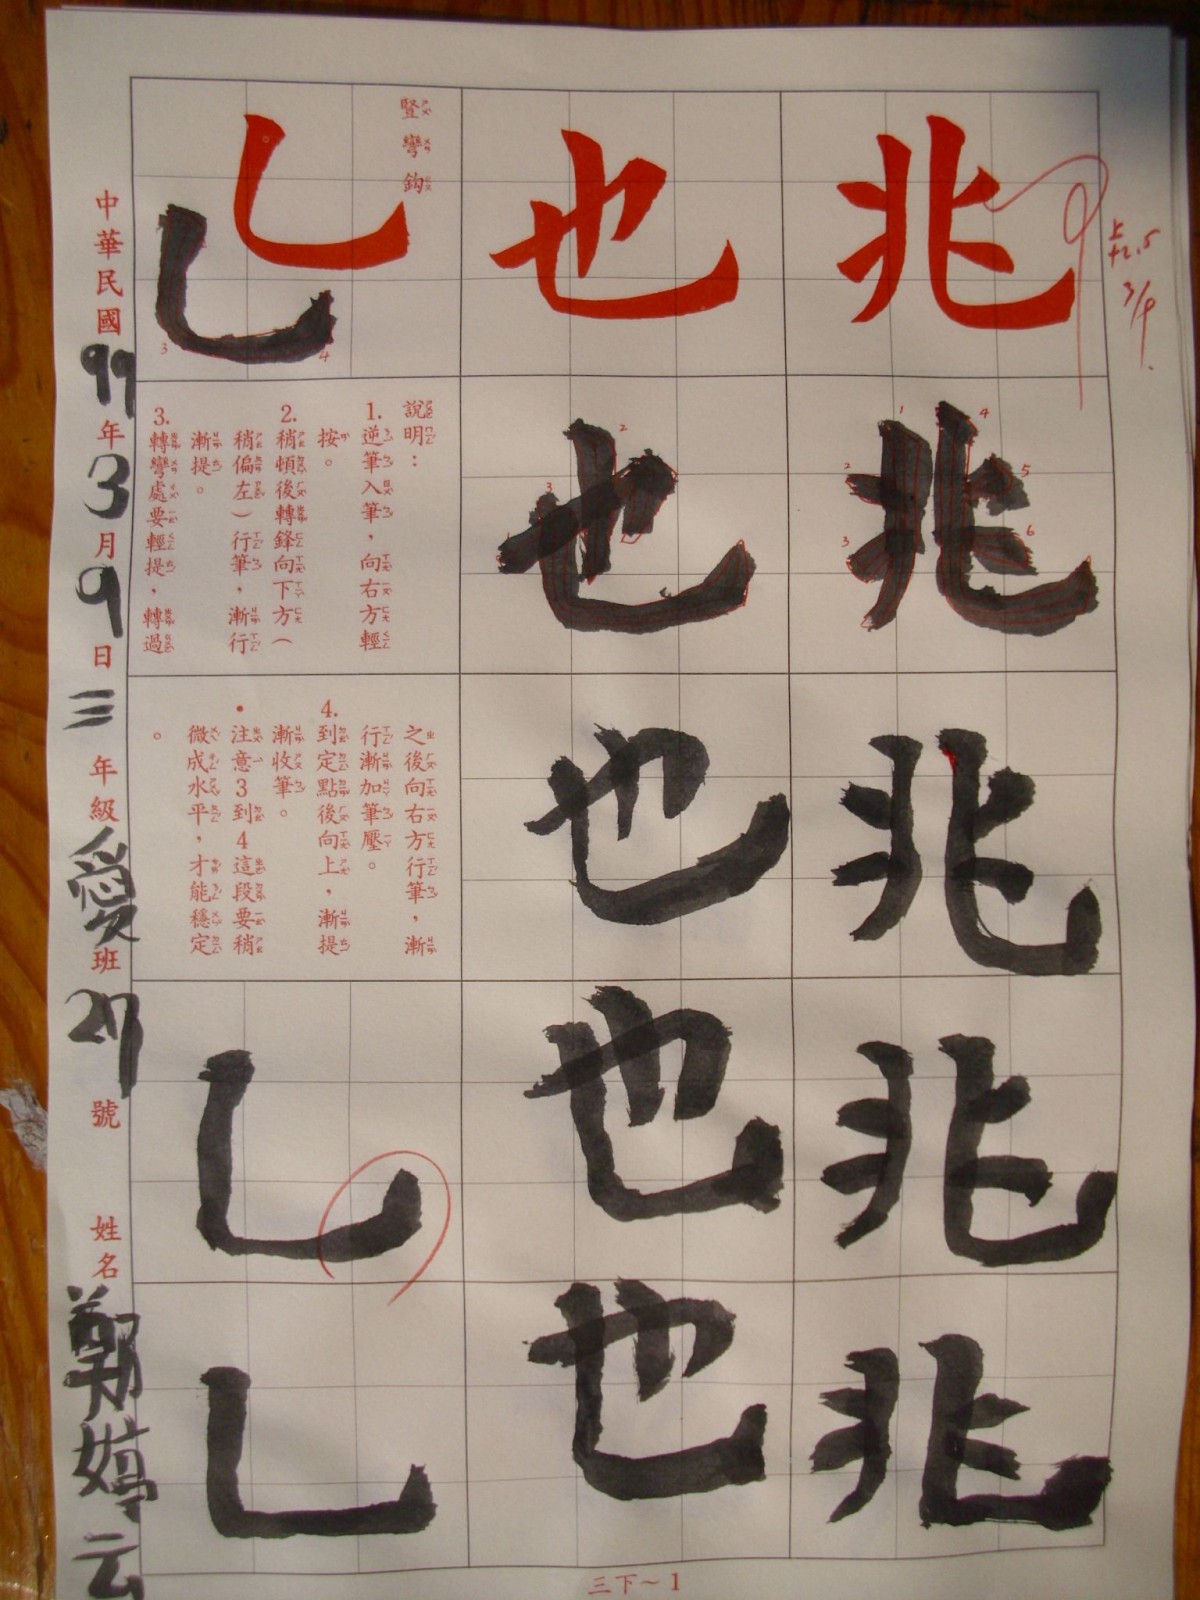 兆
兆
兆
兆
兆
也
也
也
也
也
豎彎鈎
說明：
1.逆筆入筆，向右方輕
按。
2.稍頓後轉鋒向下方（
稍偏左）行筆，漸行
漸提。
3.轉彎處要輕提，轉過
之後向右方行筆，漸
行漸加筆壓。
4.到定點後向上，漸提
漸收筆。
•注意3到4這段要稍
微成水平，才能穩定
。
中華民國99年3月9日三年級愛班27號 姓名鄭婷云
三下～1
3/9